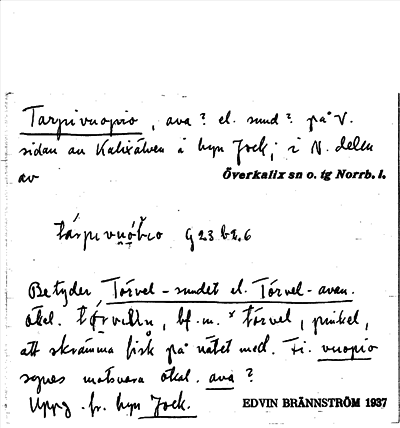 Tarpivuopio, ava? el. sund? på V.
sidan av Kalixälven i byn Jock; i N. delen
av Överkalix sn o. tg Norrb. l.
G 23 b2.6
Betyder Törvel-sundet el. Törvel-avan.
ökel. bf. m. törvel, pinkel,
att skrämma fisk på nätet med. Fi. vuopio
synes motsvara ökal. ava?
Uppg. fr. byn Jock. EDVIN BRÄNNSTRÖM 1937